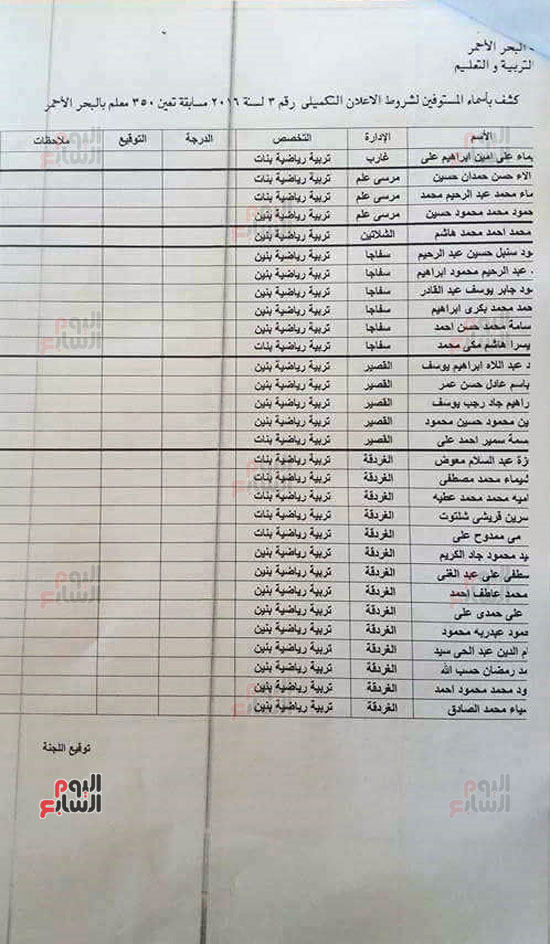 البحر الأحمر
التربية و التعليم
كشف بأسماء المستوفين لشروط الاعلان التكميلى رقم ٣ لسنة ٢٠١٦ مسابقة تعين ٣٥٠ معلم بالبحر الأحمر
الأسم الإدارة التخصص الدرجة التوقيع ملاحظات
يماء على امين ابراهيم على غارب تربية رياضية بنات
الاء حسن حمدان حسين مرسى علم تربية رياضية بنات
ماء محمد عبد الرحيم محمد مرسى علم تربية رياضية بنات
حمود محمد محمود حسين مرسى علم تربية رياضية بنين
محمد احمد محمد هاشم الشلاتين تربية رياضية بنين
ود سنبل حسين عبد الرحيم سفاجا تربية رياضية بنين
عبد الرحيم محمود ابراهيم سفاجا تربية رياضية بنين
ود جابر يوسف عبد القادر سفاجا تربية رياضية بنين
حمد محمد بكرى ابراهيم سفاجا تربية رياضية بنين
سامة محمد حسن احمد سفاجا تربية رياضية بنين
يسرا هاشم مكى محمد سفاجا تربية رياضية بنات
د عبد اللاه ابراهيم يوسف القصير تربية رياضية بنين
باسم عادل حسن عمر القصير تربية رياضية بنين
راهيم جاد رجب يوسف القصير تربية رياضية بنين
ين محمود حسين محمود القصير تربية رياضية بنين
سمة سمير احمد على القصير تربية رياضية بنات
زة عبد السلام معوض الغردقة تربية رياضية بنات
شيماء محمد مصطفى الغردقة تربية رياضية بنات
اميه محمد محمد عطيه الغردقة تربية رياضية بنات
سرين قريشى شلتوت الغردقة تربية رياضية بنات
مى ممدوح على الغردقة تربية رياضية بنات
يد محمود جاد الكريم الغردقة تربية رياضية بنين
سطفى على عبد الغنى الغردقة تربية رياضية بنين
محمد عاطف احمد الغردقة تربية رياضية بنين
على حمدى على الغردقة تربية رياضية بنين
حمود عبدربه محمود الغردقة تربية رياضية بنين
ام الدين عبد الحى سيد الغردقة تربية رياضية بنين
مد رمضان حسب الله الغردقة تربية رياضية بنين
ود محمد محمود احمد الغردقة تربية رياضية بنين
مياء محمد الصادق الغردقة تربية رياضية بنات
توقيع اللجنة
اليوم السابع